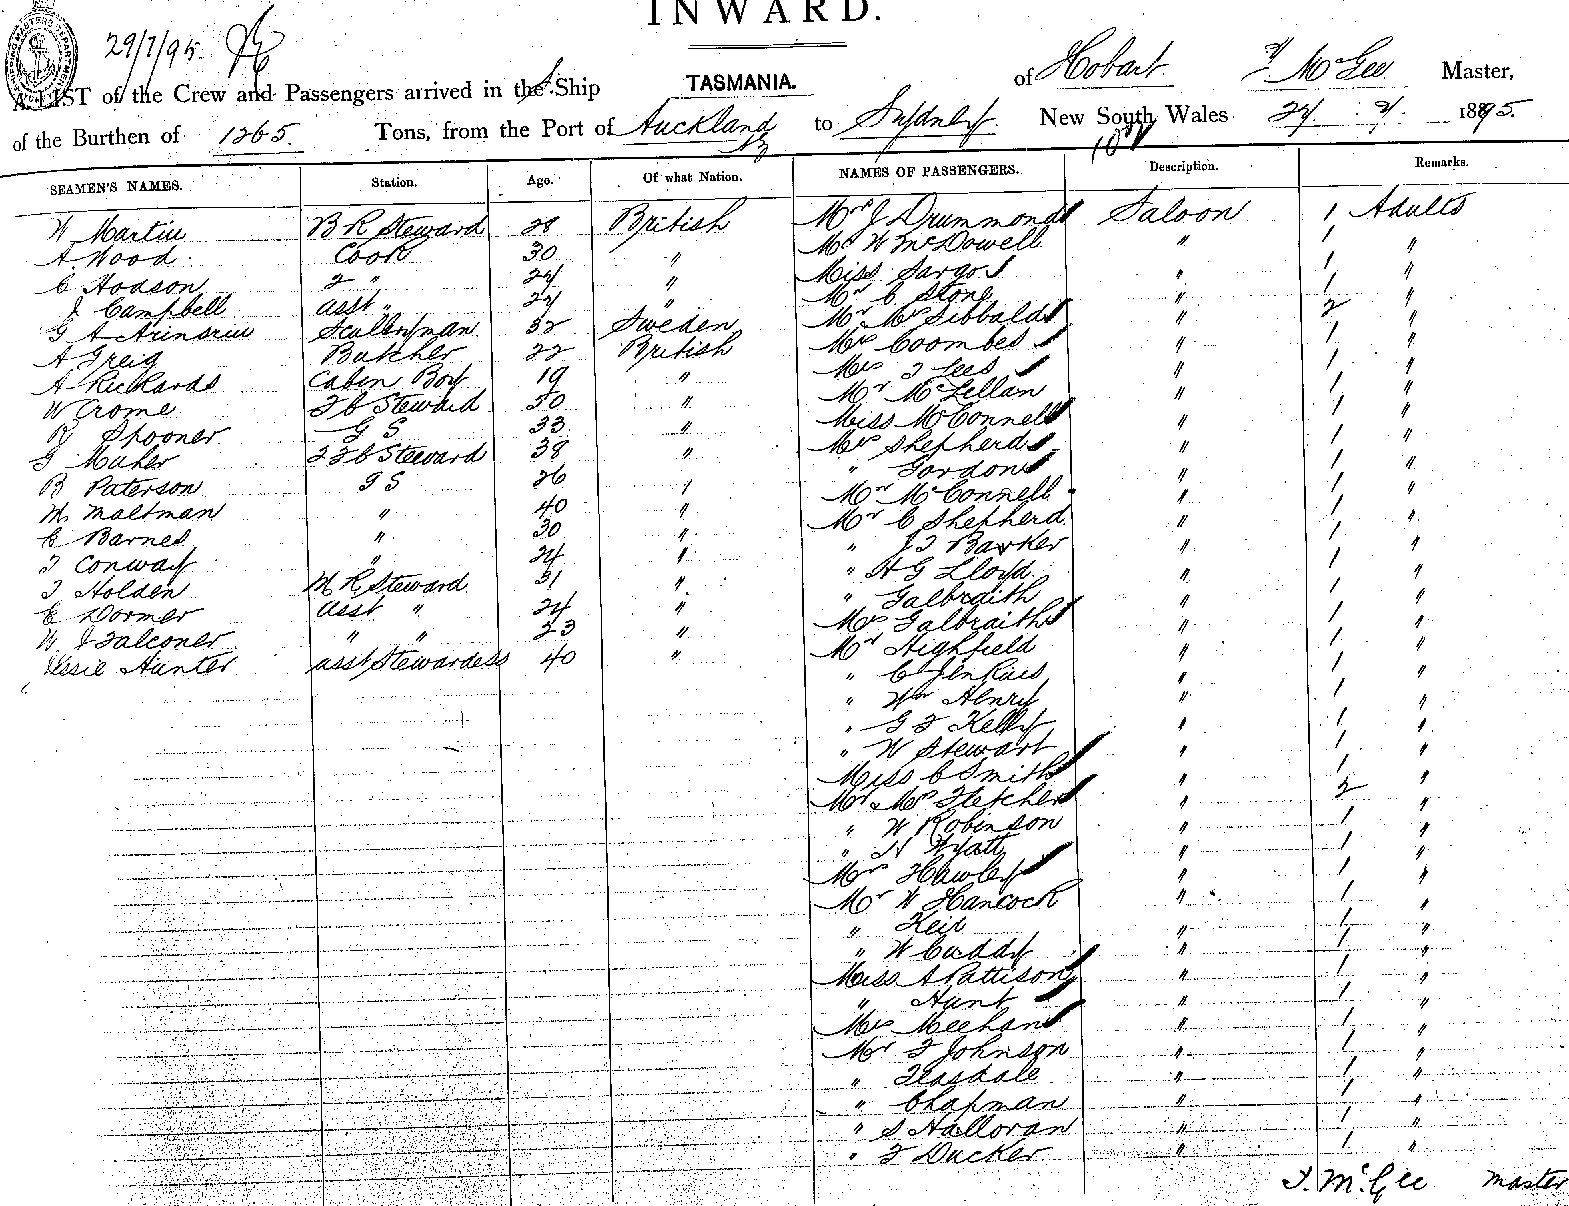 INWARD.
29/7/95
A LIST of the Crew and Passengers arrived in the S. Ship TASMANIA. of Hobart T McGee Master,
of the Burthen of 1265. Tons, from the Port of Auckland to Sydney New South Wales 1895.
SEAMEN'S NAMES. Station. Age. Of what Nation. NAMES OF PASSENGERS. Description. Remarks.
W Martin B R Steward 28 British Mrs J Drummond Saloon 1 Adults
A Wood Cook 30 " Mr W McDowell " 1 "
C Hodson 2 " 24 " Miss Sargos " 1 "
J Campbell asst " 24 " Mr C Stone " 1 "
G A Sculleryman 32 Sweden Mr Mrs Sibbald " 2 "
A Greig Butcher 22 British Mrs Coombes " 1 "
A Rickards Cabin Boy 19 " Mrs T Lees " 1 "
W Crome 2 C Steward 30 " Mr McLellan " 1 "
R Spooner G S 33 " Miss McConnell " 1 "
G Maher 2 2 C Steward 38 " Mrs Shepherd " 1 "
R Paterson G S 26 " " Gordon " 1 "
M Maltman " 40 " Mr McConnell " 1 "
C Barnes " 30 " Mr C Shepherd " 1 "
T Conway " 24 " " J T Barker " 1 "
T Holden M R Steward 31 " " H G Lloyd " 1 "
E Dormer asst " 24 " " Galbraith " 1 "
W J Falconer " " 23 " Mrs Galbraith " 1 "
Jessie Hunter asst Stewardess 40 " Mr Highfield " 1 "
" C Jenkins " 1 "
" Wm Henry " 1 "
" G F Kelly " 1 "
" W Stewart " 1 "
Miss C Smith " 1 "
Mr Mrs Fletcher " 2 "
" W Robinson " 1 "
" H Wyatt " 1 "
Mrs Hawley " 1 "
Mr W Hancock " 1 "
" Keir " 1 "
" W Cuddy " 1 "
Miss A Pattison " 1 "
" Hunt " 1 "
Mrs Meehan " 1 "
Mr T Johnson " 1 "
" Teasdale " 1 "
" Chapman " 1 "
" S Halloran " 1 "
" T Ducker " 1 "
T. McGee master